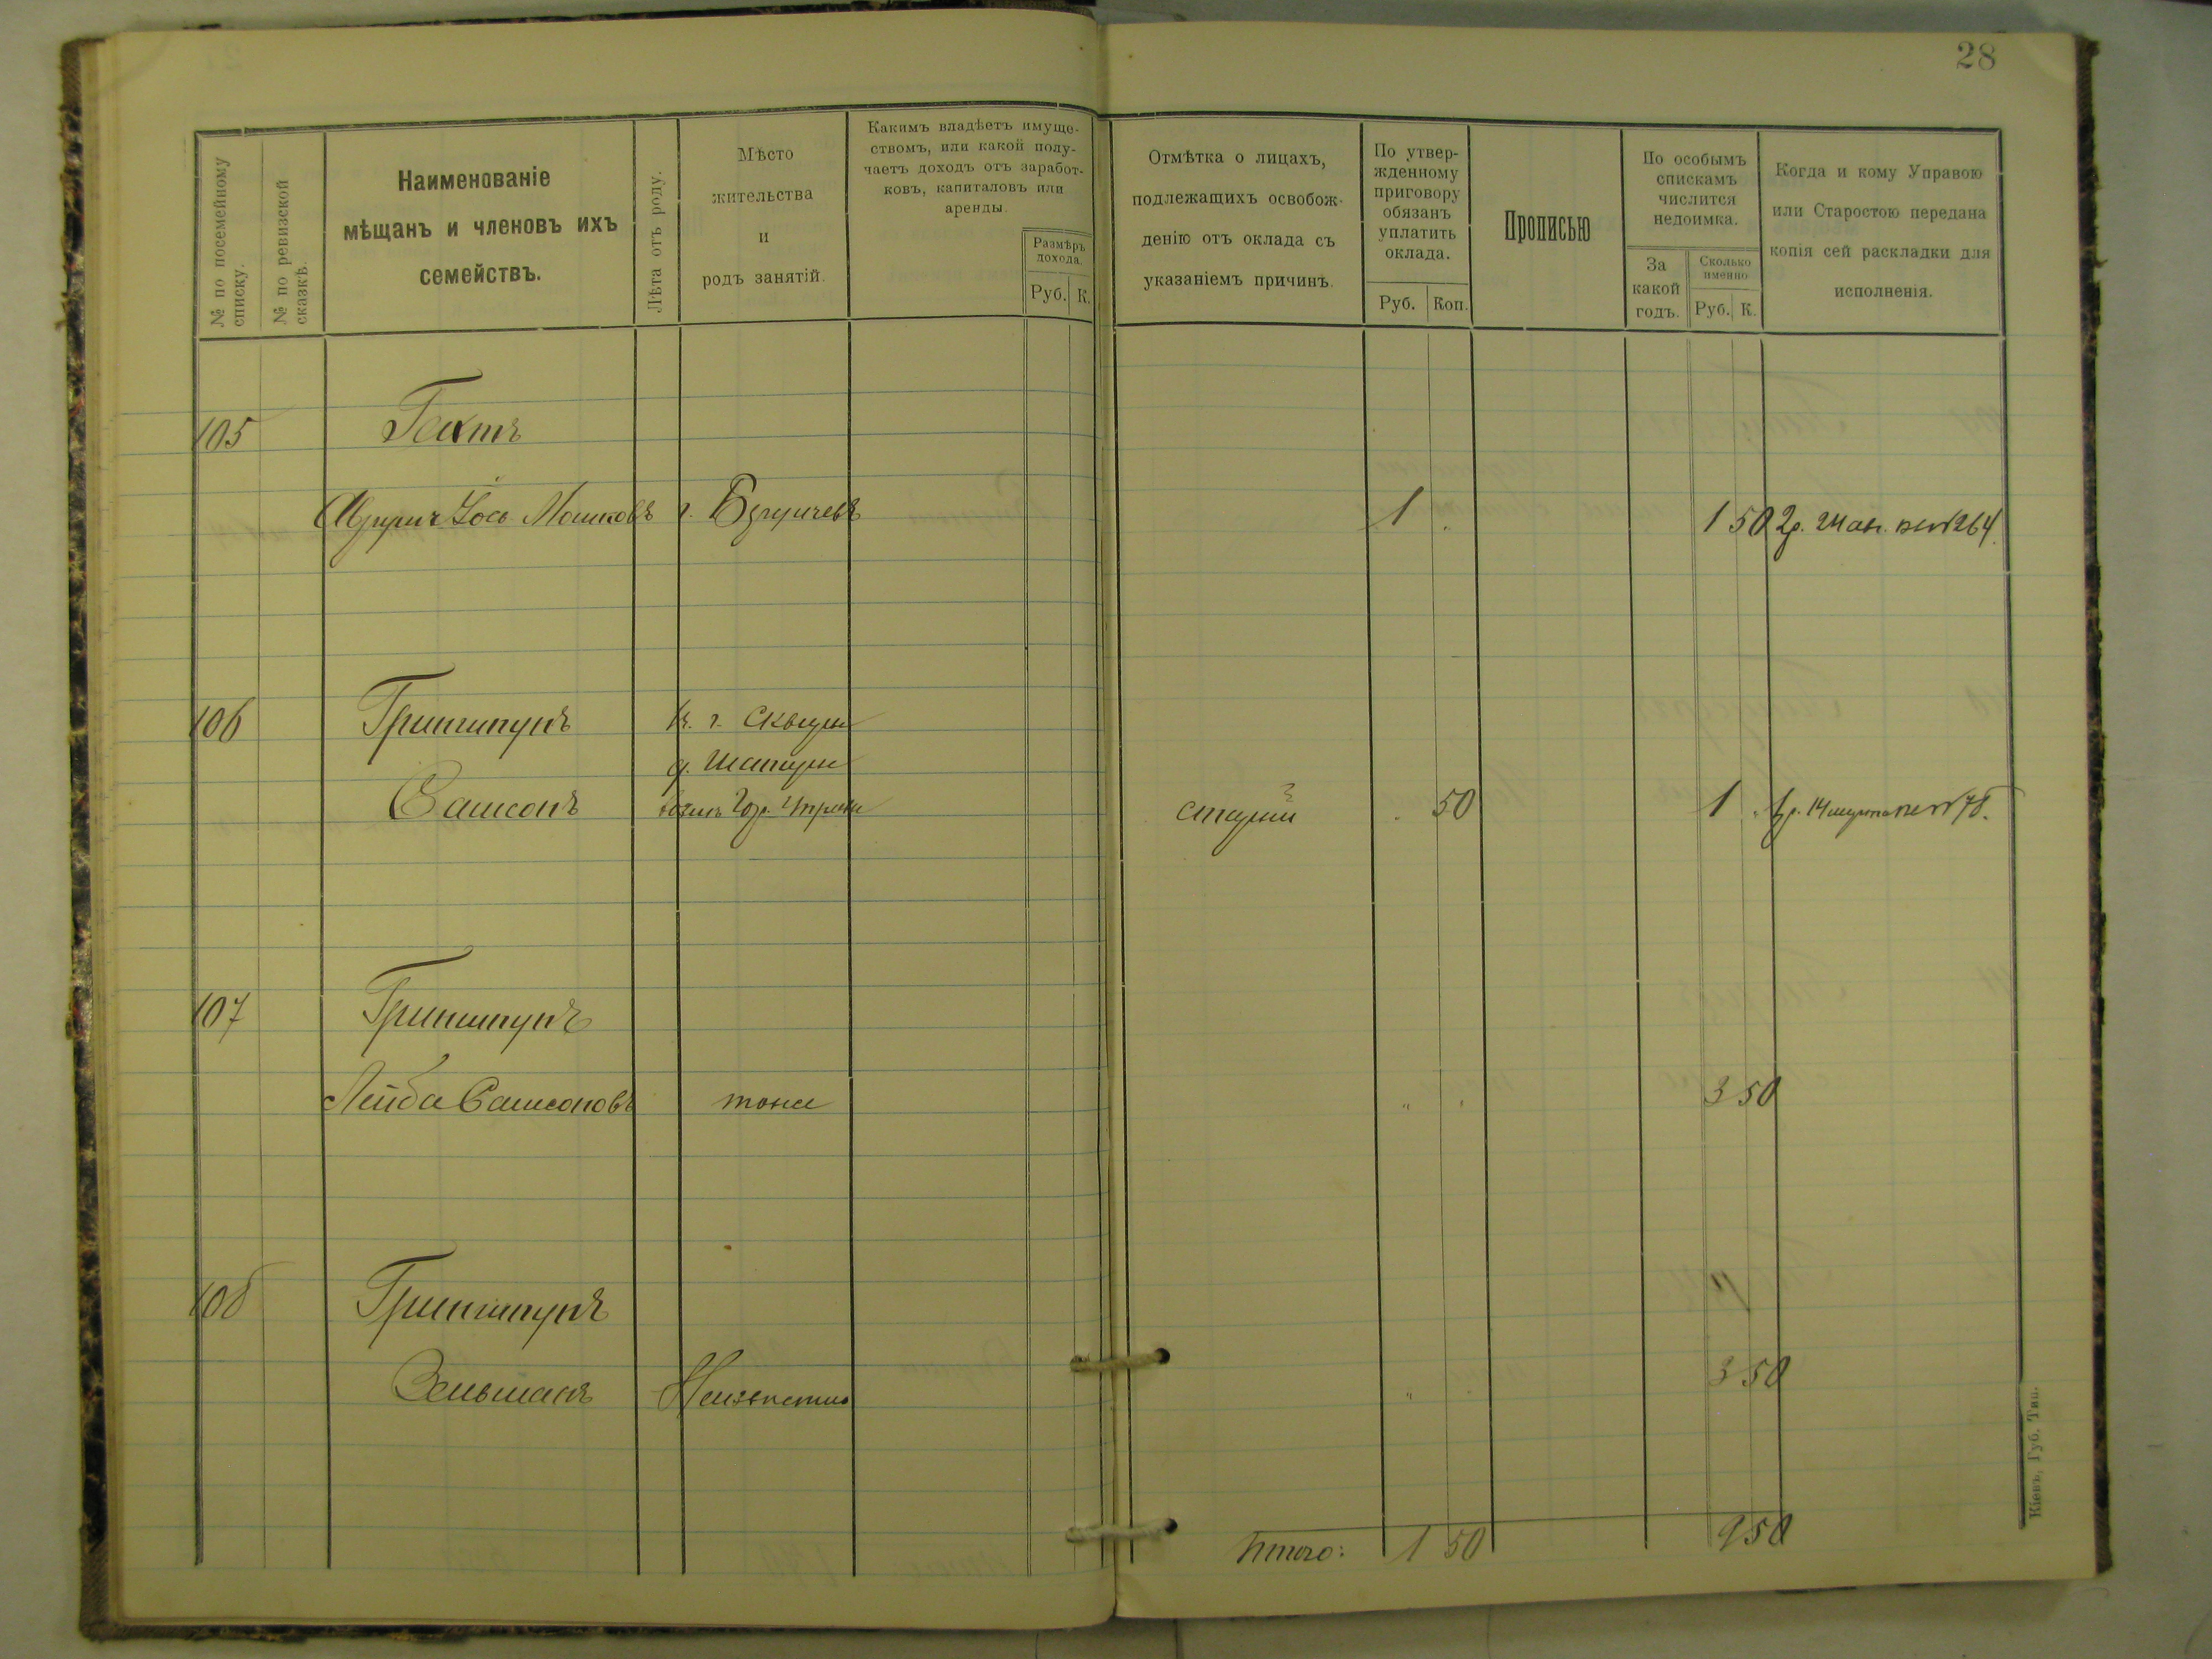 28
№ по посемейному списку.
№ по ревизской сказкѣ.
Наименованіе
мѣщанъ и членовъ ихъ
семействъ.
Лѣта отъ роду.
Мѣсто
жительства
и
родъ занятій.
Какимъ владѣетъ имуще-
ствомъ, или какой полу-
чаетъ доходъ отъ заработ-
ковъ, капиталовъ или
аренды.
Размѣръ
дохода.
Руб. К.
Отмѣтка о лицахъ,
подлежащихъ освобож-
денію отъ оклада съ
указаніемъ причинъ.
По утвер-
жденному
приговору
обязанъ
уплатить
оклада.
Руб. Коп.
Прописью
По особымъ
спискамъ
числится
недоимка.
За
какой
годъ.
Сколько
именно
Руб. К.
Когда и кому Управою
или Старостою передана
копія сей раскладки для
исполненія.
105 Гехтъ
Іось Мошковъ г. 1 1 50 2р. 264
106 Гринштунъ в. г. Сквиры
Самсонъ старый 50 1 1р. 14 марта 78.
107 Гринштунъ
Лейба Самсоновъ тоже 3 50
108 Гринштунъ
Зельманъ Неизвѣстно 3 50
Итого: 1 50 9 50
Кіевъ, Губ. Тип.